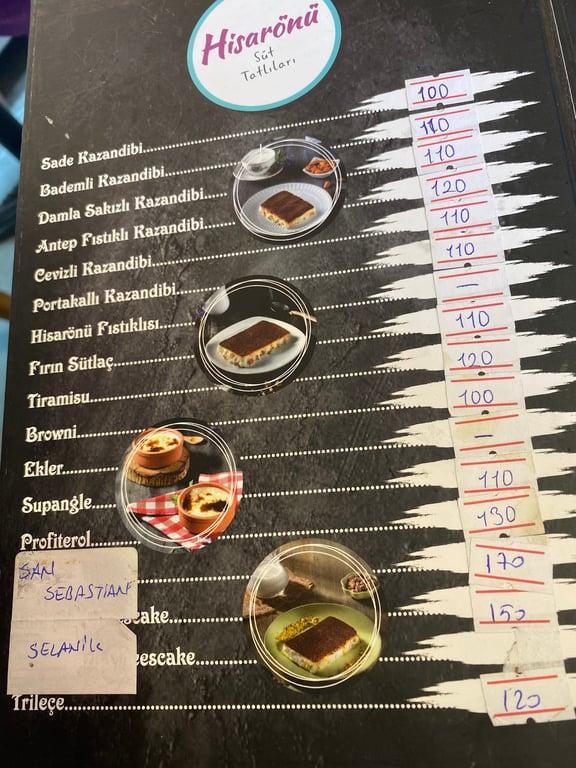 Hisarönü
Süt
Tatlıları
Sade Kazandibi 100
Bademli Kazandibi 110
Damla Sakızlı Kazandibi 110
Antep Fıstıklı Kazandibi 120
Cevizli Kazandibi 110
Portakallı Kazandibi 110
Hisarönü Fıstıklısı —
Fırın Sütlaç 110
Tiramisu 120
Browni 100
Ekler —
Supanğle 110
Profiterol 130
SAN
SEBASTIAN 170
cake 150
SELANİK
eescake
Trileçe 120